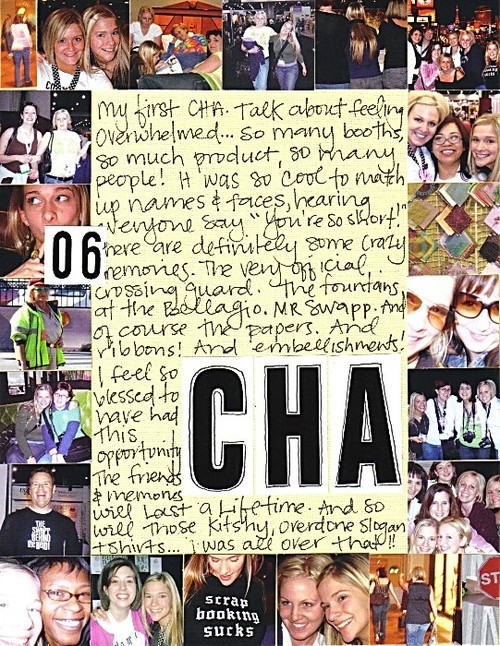 My first CHA. Talk about feeling
overwhelmed... so many booths,
so much product, so many
people! It was so cool to match
up names & faces, hearing
everyone say "You're so short!"
There are definitely some crazy
memories. The very official
crossing guard. The fountains
at the Bellagio. MR Swapp. And
of course the papers. And
ribbons! And embellishments!
06
I feel so
blessed to
have had
this
opportunity
The friends
& memories
will Last a Lifetime. And so
will Those Kitshy, overdone slogan
t-shirts... i was all over that!!
CHA
THE
SWAPP
BEHIND
scrap
booking
sucks